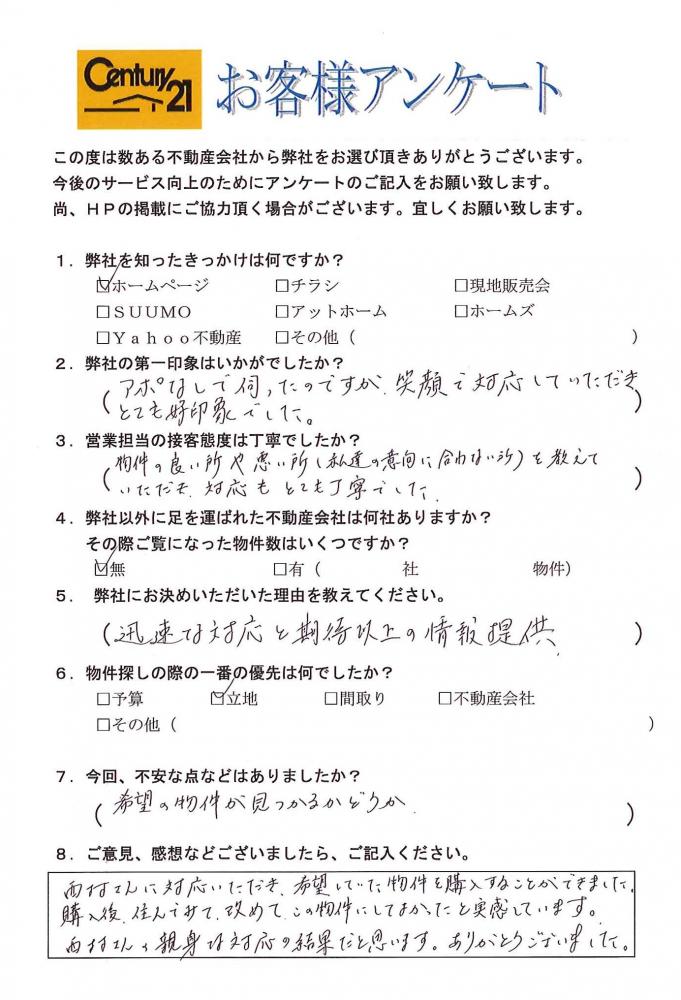 Century 21 お客様アンケート
この度は数ある不動産会社から弊社をお選び頂きありがとうございます。
今後のサービス向上のためにアンケートのご記入をお願い致します。
尚、HPの掲載にご協力頂く場合がございます。宜しくお願い致します。
1．弊社を知ったきっかけは何ですか？
☑ホームページ □チラシ □現地販売会
□SUUMO □アットホーム □ホームズ
□Yahoo不動産 □その他（ ）
2．弊社の第一印象はいかがでしたか？
（アポなしで伺ったのですが、笑顔で対応していただき
とても好印象でした。）
3．営業担当の接客態度は丁寧でしたか？
（物件の良い所や悪い所（私達の意向に合わない所）を教えて
いただき、対応もとても丁寧でした。）
4．弊社以外に足を運ばれた不動産会社は何社ありますか？
その際ご覧になった物件数はいくつですか？
☑無 □有（ 社 物件）
5． 弊社にお決めいただいた理由を教えてください。
（迅速な対応と期待以上の情報提供、）
6．物件探しの際の一番の優先は何でしたか？
□予算 ☑立地 □間取り □不動産会社
□その他（ ）
7．今回、不安な点などはありましたか？
（希望の物件が見つかるかどうか、）
8．ご意見、感想などございましたら、ご記入ください。
西村さんに対応いただき、希望していた物件を購入することができました。
購入後、住んでみて、改めて、この物件にしてよかったと実感しています。
西村さんの親身な対応の結果だと思います。ありがとうございました。